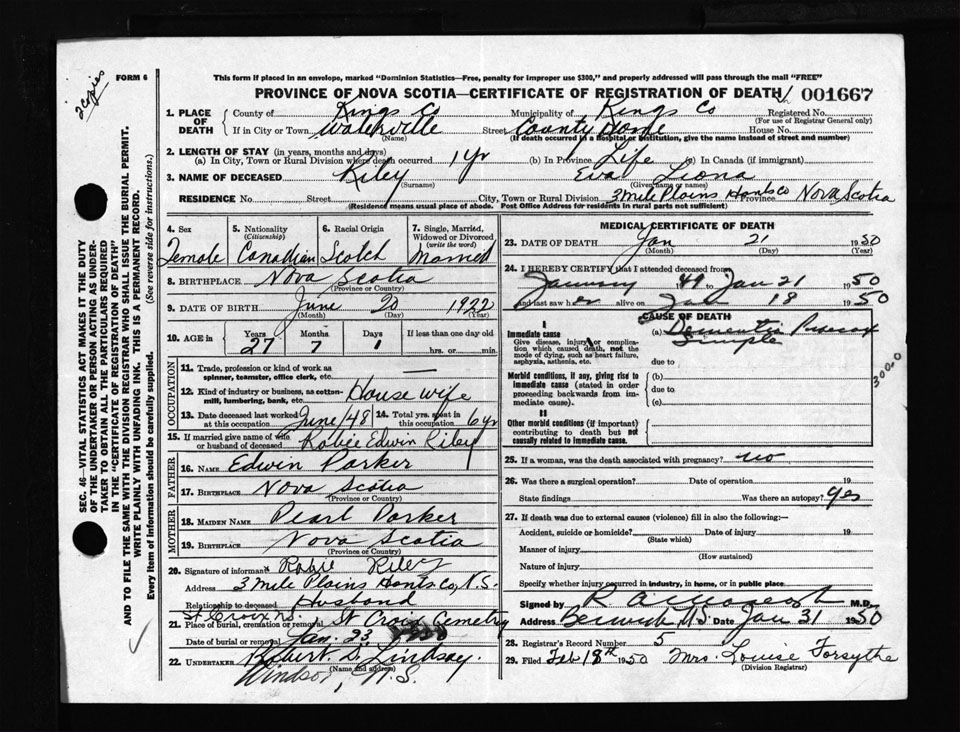 2 copies
FORM 6
This form if placed in an envelope, marked "Dominion Statistics—Free, penalty for improper use $300," and properly addressed will pass through the mail "FREE"
PROVINCE OF NOVA SCOTIA—CERTIFICATE OF REGISTRATION OF DEATH 001667
1. PLACE OF DEATH
County of Kings Co Municipality of Kings Co Registered No.
(For use of Registrar General only)
If in City or Town Waterville Street County Home House No.
(Name) (If death occurred in a hospital or institution, give the name instead of street and number)
2. LENGTH OF STAY (in years, months and days)
(a) In City, Town or Rural Division where death occurred 1 yr (b) In Province Life (c) In Canada (if immigrant)
3. NAME OF DECEASED Riley Eva Liona
(Surname) (Given name or names)
RESIDENCE No. Street City, Town or Rural Division 3 Mile Plains Hants Co Province Nova Scotia
(Residence means usual place of abode. Post Office Address for residents in rural parts not sufficient)
4. Sex 5. Nationality (Citizenship) 6. Racial Origin 7. Single, Married, Widowed or Divorced (write the word)
Female Canadian Scotch Married
8. BIRTHPLACE Nova Scotia
(Province or Country)
9. DATE OF BIRTH June 20 1922
(Month) (Day) (Year)
10. AGE in Years Months Days If less than one day old
27 7 1 hrs. or min.
OCCUPATION
11. Trade, profession or kind of work as spinner, teamster, office clerk, etc. —
12. Kind of industry or business, as cotton-mill, lumbering, bank, etc. House wife
13. Date deceased last worked at this occupation June/48 14. Total yrs. spent in this occupation 6 yr
15. If married give name of wife or husband of deceased Robie Edwin Riley
FATHER
16. NAME Edwin Parker
17. BIRTHPLACE Nova Scotia
(Province or Country)
MOTHER
18. MAIDEN NAME Pearl Parker
19. BIRTHPLACE Nova Scotia
(Province or Country)
20. Signature of informant Robie Riley
Address 3 Mile Plains Hants Co, N.S.
Relationship to deceased Husband
St Croix NS
21. Place of burial, cremation or removal St Croix Cemetery
Date of burial or removal Jan. 23
22. UNDERTAKER Robert S. Lindsay.
(Name and address)
Windsor, N.S.
MEDICAL CERTIFICATE OF DEATH
23. DATE OF DEATH Jan 21 1950
(Month) (Day) (Year)
24. I HEREBY CERTIFY that I attended deceased from
January 49 to Jan 21 1950
and last saw her alive on Jan 18 1950
CAUSE OF DEATH
I
Immediate cause
Give disease, injury or complication which caused death, not the mode of dying, such as heart failure, asphyxia, asthenia, etc.
(a) Dementia Praecox
Simple
due to
Morbid conditions, if any, giving rise to immediate cause (stated in order proceeding backwards from immediate cause).
(b)
due to
(c)
3000
II
Other morbid conditions (if important) contributing to death but not causally related to immediate cause.
25. If a woman, was the death associated with pregnancy? no
26. Was there a surgical operation? Date of operation 19
State findings Was there an autopsy? yes
27. If death was due to external causes (violence) fill in also the following:—
Accident, suicide or homicide? Date of injury 19
(State which)
Manner of injury
(How sustained)
Nature of injury
Specify whether injury occurred in industry, in home, or in public place
Signed by M.D.
Address Berwick N.S. Date Jan 31 1950
28. Registrar's Record Number 5
29. Filed Feb 18th 1950 Mrs. Louise Forsythe
(Division Registrar)
SEC. 46—VITAL STATISTICS ACT MAKES IT THE DUTY
OF THE UNDERTAKER OR PERSON ACTING AS UNDER-
TAKER TO OBTAIN ALL THE PARTICULARS REQUIRED
IN THE "CERTIFICATE OF REGISTRATION OF DEATH"
AND TO FILE THE SAME WITH THE DIVISION REGISTRAR WHO SHALL ISSUE THE BURIAL PERMIT.
WRITE PLAINLY WITH UNFADING INK. THIS IS A PERMANENT RECORD.
Every item of Information should be carefully supplied. (See reverse side for instructions.)